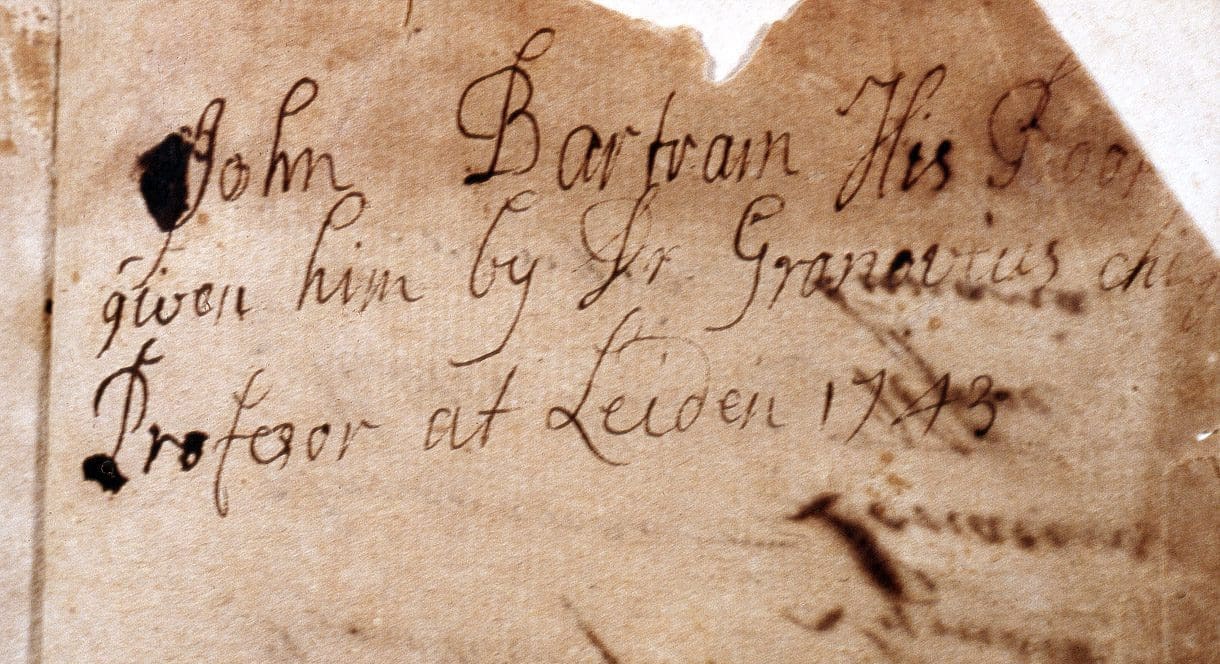 John Bartram His
given him by Dr Gronovius
Profesor at Leiden 1743